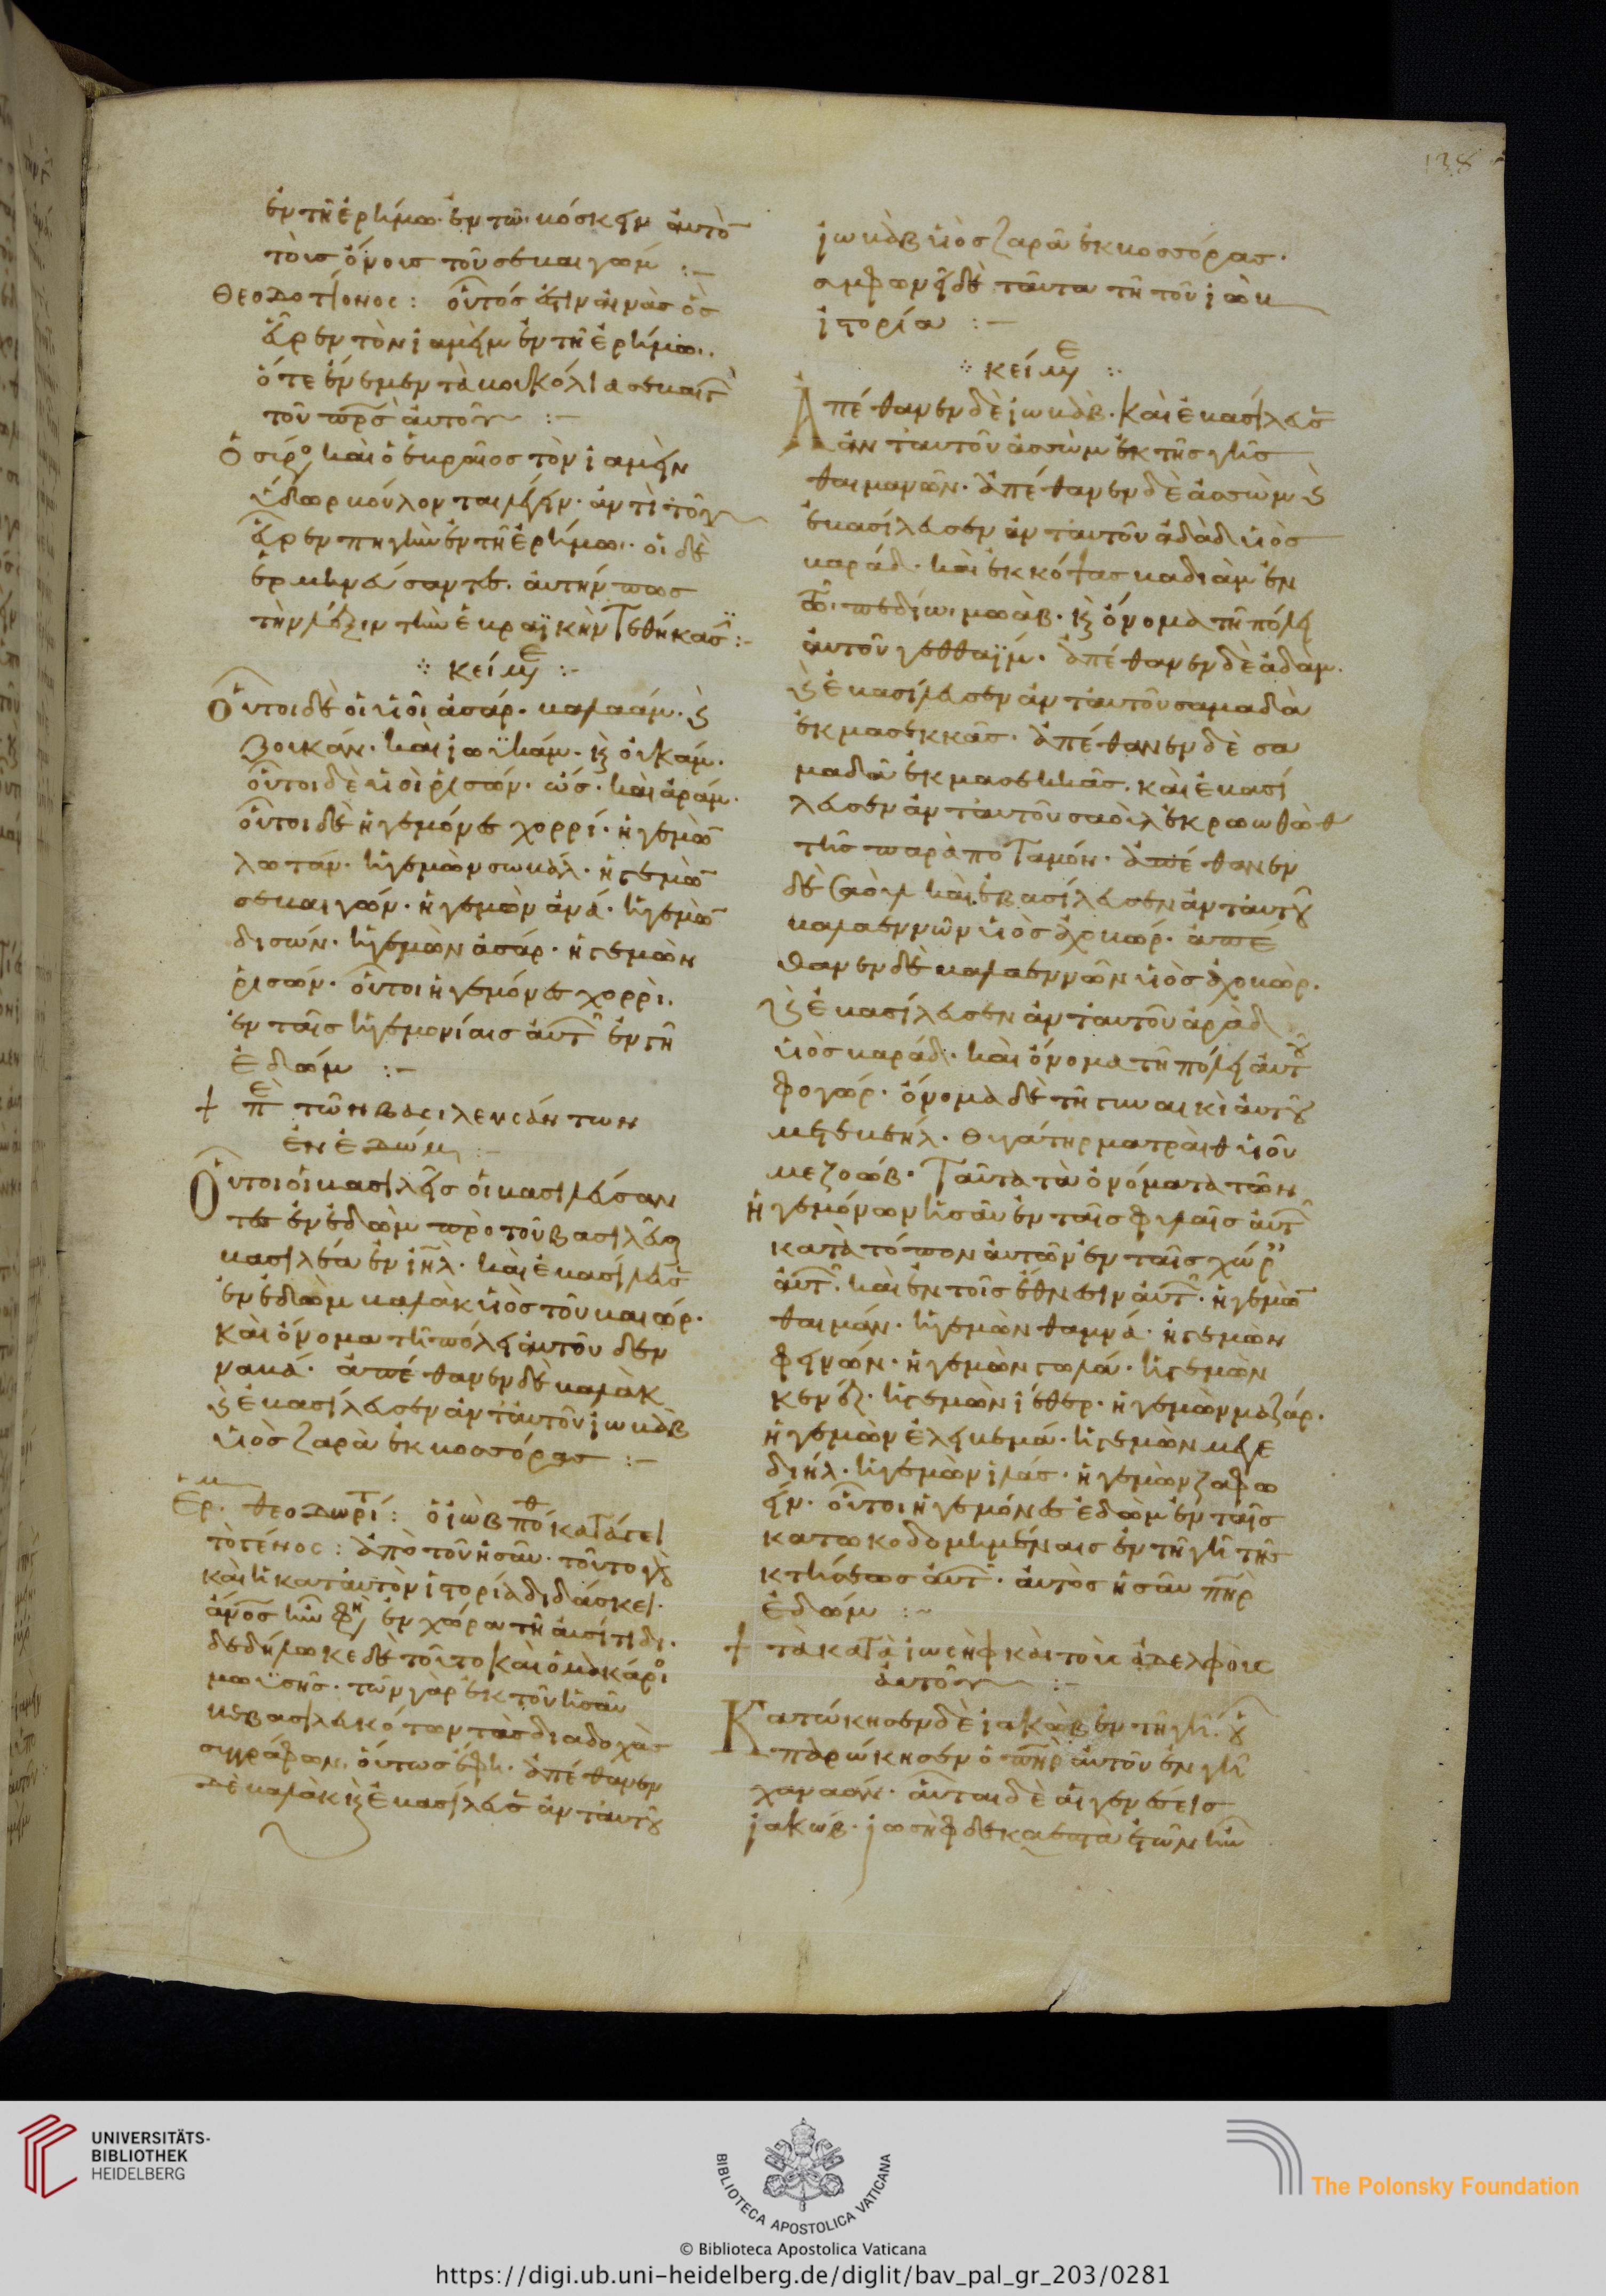 138
ἐν τῆ ἐρήμω· ἐν τῶ βόσκειν αὐτὸ
τοὺς ὄνους τοῦ σεβαιγὼμ :-
ΘΕΟΔΟΤΙΟΝΟΣ: οὗτός ἐστιν αἰνὰς ὃς
εὗρεν τὸν ἰαμεὶμ ἐν τῆ ἐρήμω·
ὅτε ἔνεμεν τὰ
τοῦ πρς αὐτοῦ :-
ὁ σύρο καὶ ὁ ἑβραῖος τὸν ἰαμεὶν
ὕδωρ βούλονται λέγειν· ἀντὶ τοῦ
εὗρεν πηγὴν ἐν τῆ ἐρήμω· οἱ δὲ
ἑρμηνεύσαντες· αὐτήν πως
τὴν λέξιν τὴν ἑβραϊκὴν τεθήκασϊ :-
κείμ :-
Οὗτοι δὲ οἱ υἱοὶ ἀσάρ· βαλαάμ· ς
ζουκάν· καὶ ἰωϋκάμ· κ οὐκάμ·
οὗτοι δὲ υἱοὶ ῥισών· ὡς· καὶ ἀράμ·
οὗτοι δὲ ἡγεμόνες χορρί· ἡγεμὼ
λωτάν· ἡγεμὼν σωβάλ· ἡγεμὼ
σεβαιγών· ἡγεμὼν ἀνά· ἡγεμὼ
δισών· ἡγεμὼν ἀσάρ· ἡγεμὼν
ῥισών· οὗτοι ἡγεμόνες χορρὶ·
ἐν ταῖς ἡγεμονίαις αὐτ ἐν τῆ
ἐδώμ :-
+ π τῶν βασιλευσάντων
ἐν ἐδώμ :-
Οὗτοι οἱ βασιλεῖς οἱ βασιλεύσαν
τες ἐν ἐδὼμ πρὸ τοῦ βασιλεῦσ
βασιλέα ἐν ιηλ· καὶ ἐβασίλευσ
ἐν ἐδὼμ βαλὰκ υἱὸς τοῦ βαιώρ·
καὶ ὄνομα τῆ πόλει αὐτοῦ δεν
ναβά· ἀπέθανεν δὲ βαλὰκ
ς ἐβασίλευσεν ἀντ αὐτοῦ ἰωβὰβ
υἱὸς ζαρὰ ἐκ βοσσόρας :-
Ερμ. θεοδωρίτ: ὁ ἰὼβ ποθ κατάγει
τὸ γένος: ἀπὸ τοῦ ἡσαῦ· τοῦτο γὰρ
καὶ ἡ κατ αὐτὸν ἱστορία διδάσκει·
ἀνος ἦν φη ἐν χώρα τῆ αὐσίτιδι·
δεδήλωκε δὲ τοῦτο καὶ ὁ μακάριο
μωϋσῆς· τῶν γὰρ ἐκ τοῦ ἡσαῦ
βεβασιλευκότων τὰς διαδοχὰς
συγγράφων, οὕτως ἔφη· ἀπέθανεν
δὲ βαλὰκ κ ἐβασίλευσ ἀντ αὐτοῦ
ἰωβὰβ υἱὸς ζαρᾶ ἐκ βοσσόρας·
συμφωνεῖ δὲ ταῦτα τῆ τοῦ ἰὼβ
ἱστορία :-
κείμ :-
Ἀπέθανεν δὲ ἰωβὰβ· καὶ ἐβασίλευσ
ἀντ αὐτοῦ ἀσσὼμ ἐκ τῆς γῆς
θαιμανῶν· ἀπέθανεν δὲ ἀσσὼμ ς
ἐβασίλευσεν ἀντ αὐτοῦ ἀδὰδ υἱὸς
βαράδ· καὶ ἐκκόψας μαδιὰμ ἐν
τῶ πεδίω μωὰβ· κ ὄνομα τῆ πόλει
αὐτοῦ γεθθαΐμ· ἀπέθανεν δὲ ἀδὰμ·
ς ἐβασίλευσεν ἀντ αὐτοῦ σαμαδὰ
ἐκ μασεκκᾶς· ἀπέθανεν δὲ σα
μαδᾶ ἐκ μασεκκᾶς· καὶ ἐβασί
λευσεν ἀντ αὐτοῦ σαοὺλ ἐκ ροωβὼθ
τῆς παρὰ ποταμόν· ἀπέθανεν
δὲ σαοὺλ καὶ ἐβασίλευσεν ἀντ αὐτοῦ
βαλαεννὼν υἱὸς ἀχοβώρ· ἀπέ
θανεν δὲ βαλαεννῶν υἱὸς ἀχοβώρ·
ς ἐβασίλευσεν ἀντ αὐτοῦ ἀρὰδ
υἱὸς βαράδ· καὶ ὄνομα τῆ πόλει αὐτοῦ
φογώρ· ὄνομα δὲ τῆ γυναικὶ αὐτοῦ
μετεβεήλ· θυγάτηρ ματραὶθ υἱοῦ
μεζοώβ· Ταῦτα τὰ ὀνόματα τῶν
ἡγεμόνων ἡσαῦ ἐν ταῖς φυλαῖς αὐτ
κατὰ τόπον αὐτῶν ἐν ταῖς χώρ
αὐτ· καὶ ἐν τοῖς ἔθνεσιν αὐτ· ἡγεμὼ
θαιμάν· ἡγεμὼν θαμνά· ἡγεμὼν
φεινών· ἡγεμὼν γωλά· ἡγεμὼν
κενέζ· ἡγεμὼν ἰέθερ· ἡγεμὼν μαζάρ·
ἡγεμὼν ἐλειβεμά· ἡγεμὼν μεγε
διήλ· ἡγεμὼν ἰλάς· ἡγεμὼν ζαφω
είν· οὗτοι ἡγεμόνες ἐδὼμ ἐν ταῖς
κατωκοδομημέναις ἐν τῆ γῆ τῆς
κτήσεως αὐτ· αὐτὸς ἡσαῦ πηρ
ἐδώμ :~
+ τὰ κατὰ ἰωσὴφ καὶ τοὺς ἀδελφοὺς
αὐτοῦ :-
Κατώκησεν δὲ ἰακὼβ ἐν τῆ γῆ οὗ
παρώκησεν ὁ πηρ αὐτοῦ ἐν γῆ
χαναάν· αὗται δὲ αἱ γενέσεις
ἰακώβ· ἰωσὴφ δεκαεπτὰ ἐτῶν ἦν
UNIVERSITÄTS-
BIBLIOTHEK
HEIDELBERG
BIBLIOTECA APOSTOLICA VATICANA
The Polonsky Foundation
© Biblioteca Apostolica Vaticana
https://digi.ub.uni-heidelberg.de/diglit/bav_pal_gr_203/0281